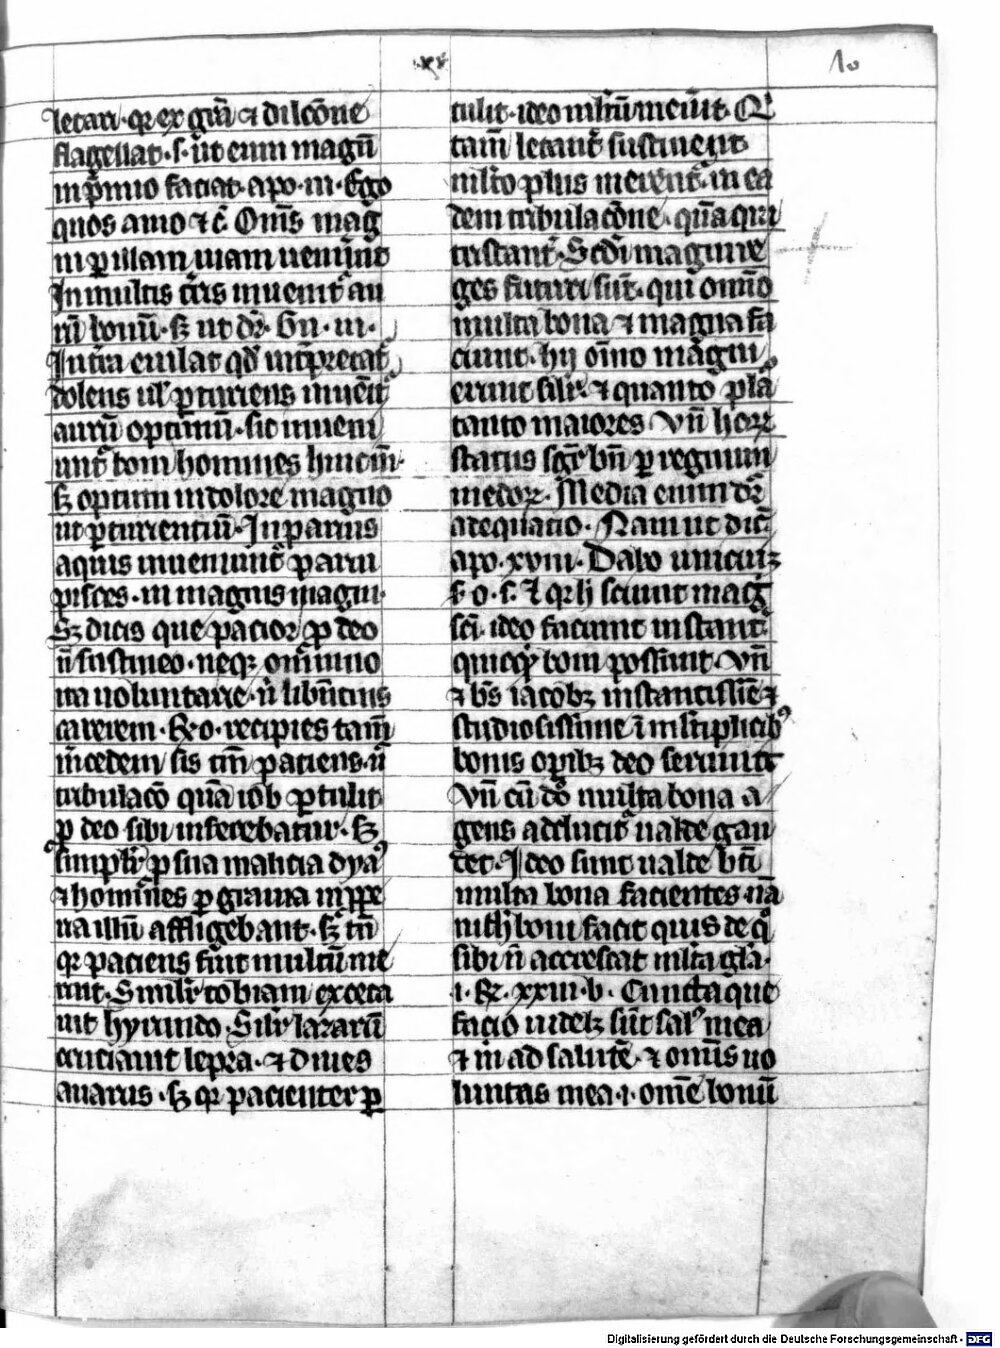 xx
10
letari · qr ex grā ⁊ dilcōne
flagellat · s · ut eum magnū
in p̄mio faciat · apo · iii · Ego
quos amo ⁊ c̄ · Om̄s mag
ni per illam uiam uenerunt
In multis tīis inuenit̄ au
rū bonū · sꝫ ut dr̄ · Gn̄ · iii ·
Intīa euilat qd̄ intꝑretat̄
dolens ul̓ ꝑturiens inuēit̄
aurū optimū · sic inueni
unt̄ boni homines hinc in̄
sꝫ optimi in dolore magno
ut ꝑturientiū · In paruis
aquis inueniunt̄ parui
pisces · in magnis magni ·
Sꝫ dicis que pacior ꝓ deo
n̄ sustineo · neqꝫ omnino
ita uoluntarie · n̄ libentius
carerem · Rn̄o · recipies tam̄
m̄cedem sis tm̄ paciens · n̄
tribulacō quā iob ꝑtulit
ꝓ deo sibi inferebatur · sꝫ
simpl̓r ꝓ sua malicia dyaꝰ
⁊ homines ꝑ grauia
illū affligebant · sꝫ tn̄
qr paciens fuit multū me
ruit · Simil̓r tobiam exceca
uit hyrundo · Sil̓r lazarū
cruciauit lepra · ⁊ diues
auarus · sꝫ qr pacienter ꝑ
tulit · ideo
tam̄ letant̄ sustinent
multo plus merent̄ in ea
dem tribulacōne · quā qui
tristant̄ · Scd̄i magni re
ges futuri sūt · qui omīo
multa bona ⁊ magna fa
ciunt · hij oīno magni
erunt sil̓r · ⁊ quanto pl̄a
tanto maiores Vn̄ hoꝝ
status sgr̄ bn̄ ꝑ regnum
medoꝝ · Media enim dr̄
adequatio · Nam ut dicit̄
apo · xviii · Dabo unicuiqꝫ
s̄ o · s · ⁊ qr h̄ sciunt maḡ
sci · ideo faciunt instant̄
quicqͥd boni possunt · Vn̄
⁊ bs̄ iacobꝫ instantissīe ⁊
studiosissime ī m̄ltiplicibꝰ
bonis oꝑibꝫ deo seruiuit
Vn̄ cū do multa bona a
gens adducit̄ ualde gau
det · Ideo sunt ualde bt̄i
multa bona facientes · nā
nich̄ boni facit quis de q̊
sibi n̄ accrescat ml̄ta gl̄a ·
i · Rꝫ · xxiii · b · Cunctaque
facio uidelꝫ sūt salꝰ mea
⁊ in̄ ad salutē · ⁊ om̄is uo
luntas mea · i · om̄e bonū
Digitalisierung gefördert durch die Deutsche Forschungsgemeinschaft · DFG